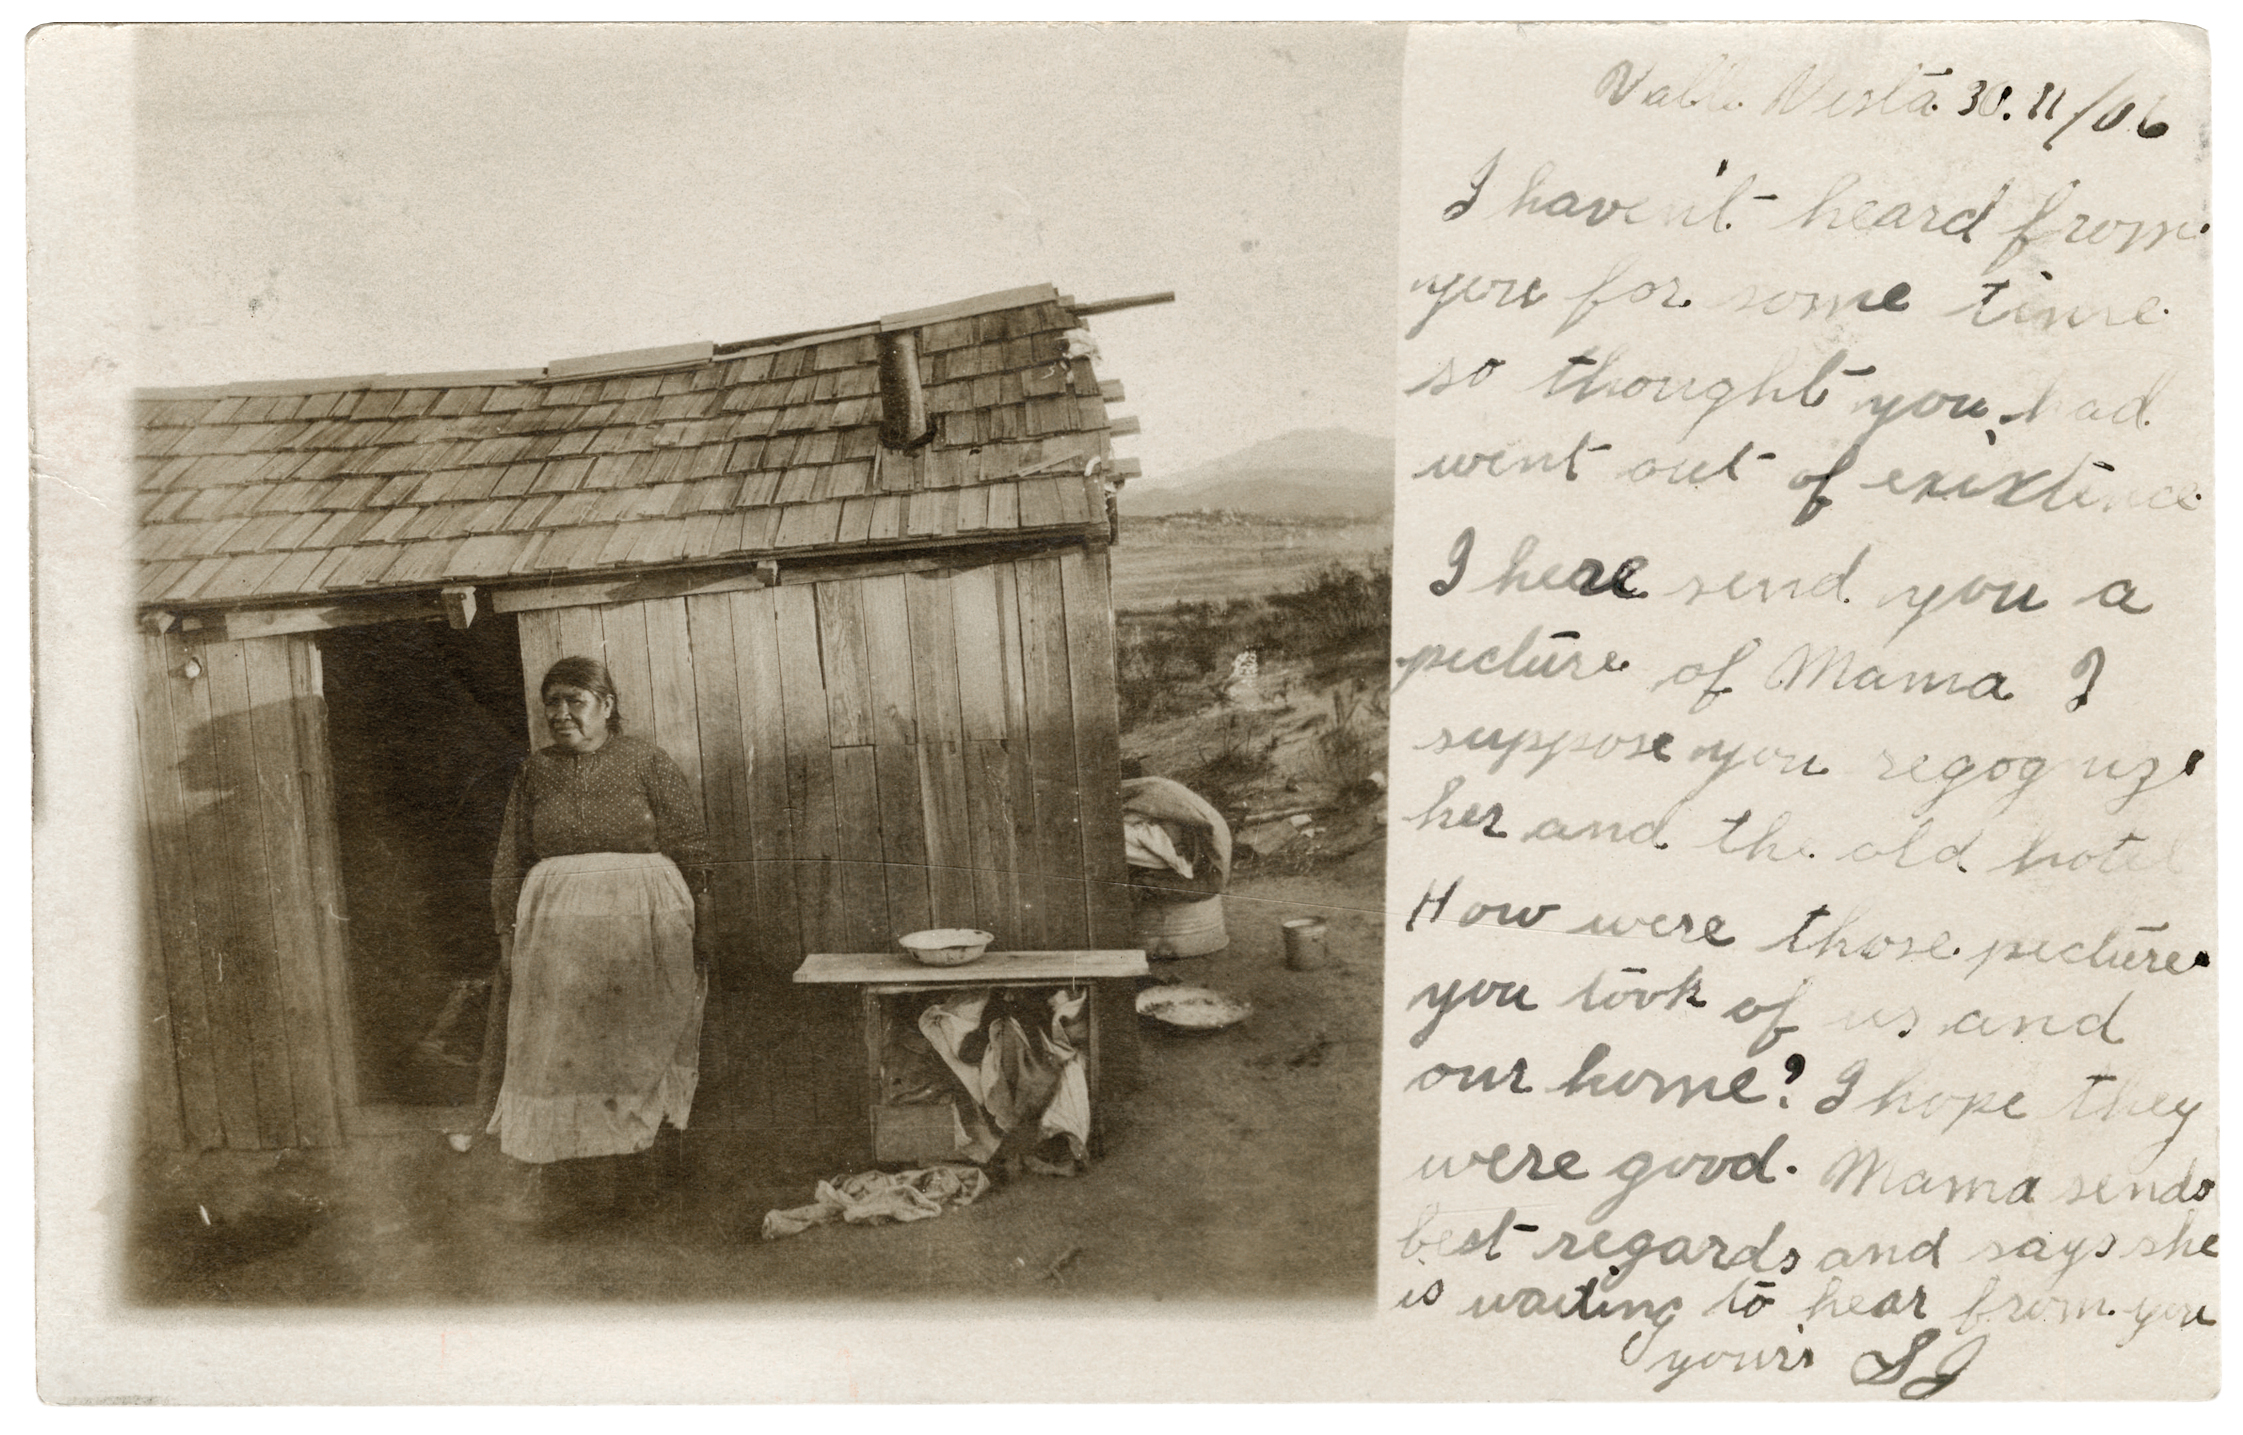 Valle Vista 30.11/06
I haven't heard from
you for some time
so thought you had
went out of exixtence
I here send you a
picture of Mama I
suppose you regognize
her and the old hotel
How were those pictures
you took of us and
our home? I hope they
were good. Mama sends
best regards and says she
is waiting to hear from you
yours SJ